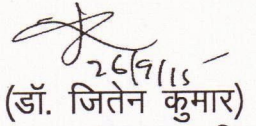 26/9/15
(डॉ. जितेन कुमार)